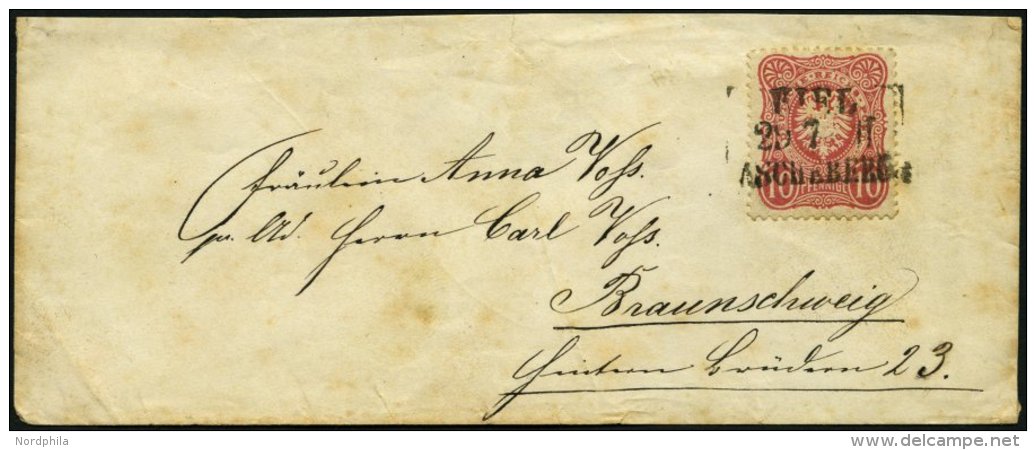 KIEL
29 7 II
ASCHEBERG
10 PFENNIGE 10
Fräulein Anna Voss.
pr. Ad. Herrn Carl Voss.
Braunschweig
Hintern Brüdern 23.
Nordphila
www.delcampe.net